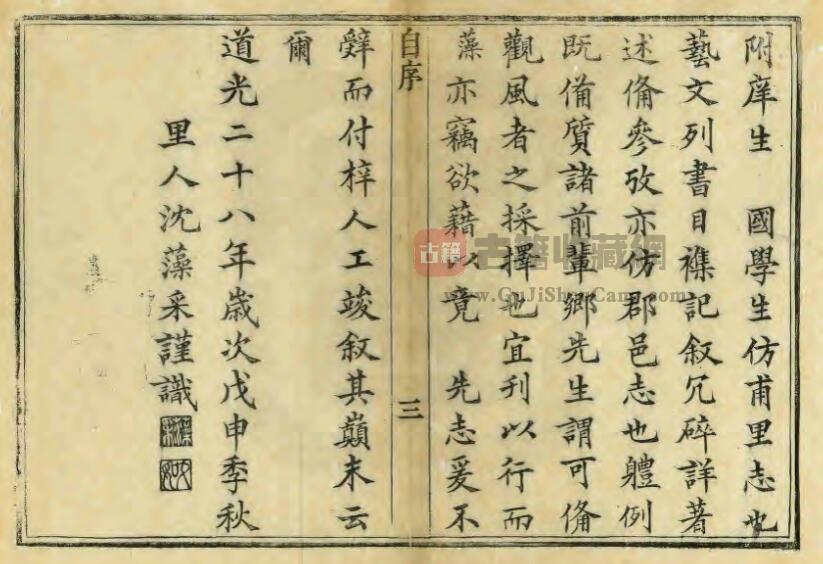 附庠生　國學生仿甫里志也
藝文列書目襍記叙冗碎詳著
述俻參攷亦仿郡邑志也軆例
既備質諸前輩鄉先生謂可俻
觀風者之採擇也宜刊以行而
藻亦竊欲藉以竟　先志爰不
自序
三
辤而付梓人工竣叙其巔末云
爾
道光二十八年歲次戊申季秋
里人沈藻采謹識
古籍
古籍收藏網
www.GuJiShuCang.com